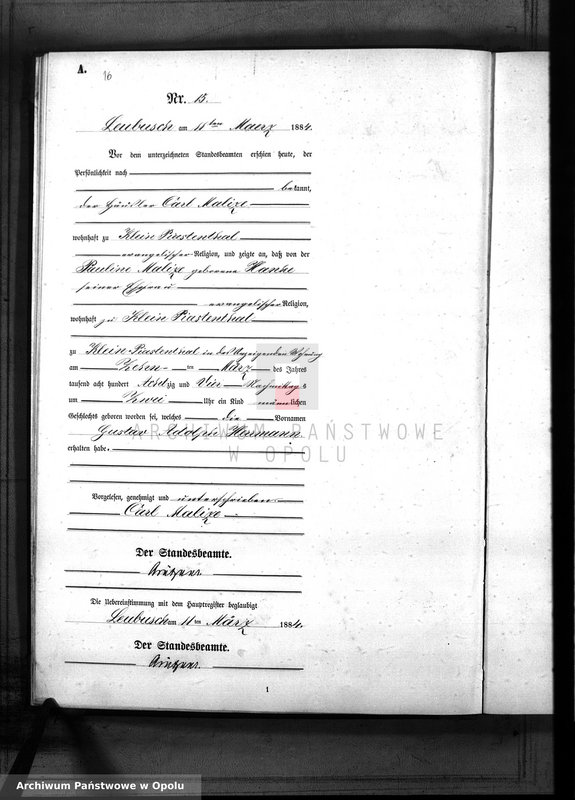 A.
16
Nr. 15.
Leubusch am 11ten Maerz 1884.
Vor dem unterzeichneten Standesbeamten erschien heute, der
Persönlichkeit nach
bekannt,
der Häusler Carl Malize
wohnhaft zu Klein
evangelischer Religion, und zeigte an, daß von der
Pauline Malize geborene Hanke
seiner Ehefrau
evangelischer Religion,
wohnhaft zu Klein
zu Klein in des Anzeigenden Wohnung
am Zehn - ten März des Jahres
tausend acht hundert Achtzig und Vier Nachmittags
um Zwei Uhr ein Kind männlichen
Geschlechts geboren worden sei, welches die Vornamen
Gustav Adolph Hermann
erhalten habe.
ARCHIWUM PAŃSTWOWE
W OPOLU
Vorgelesen, genehmigt und unterschrieben
Carl Malize
Der Standesbeamte.
Die Uebereinstimmung mit dem Hauptregister beglaubigt
Leubusch am 11ten März 1884.
Der Standesbeamte.
1
Archiwum Państwowe w Opolu